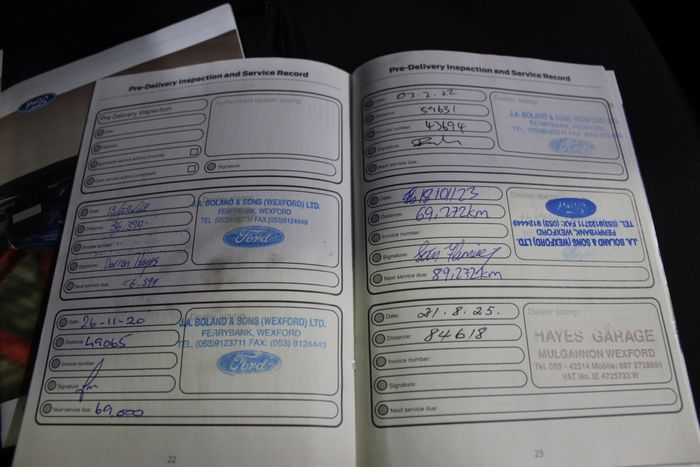 Ford
Pre-Delivery Inspection and Service Record
Pre Delivery Inspection
Authorised dealer stamp:
Signature:
Date:
Distance: 36,390
Invoice number:
Signature: Darren Hayes
Next service due:
J.A. BOLAND & SONS (WEXFORD) LTD.
FERRYBANK, WEXFORD
TEL (053)9123711 FAX: (053)9124449
Ford
Date: 26-11-20
Distance: 49065
Invoice number:
Signature:
Next service due: 69,000
Dealer stamp:
J.A. BOLAND & SONS (WEXFORD) LTD.
FERRYBANK, WEXFORD
TEL. (053)9123711 FAX: (053) 9124449
Ford
22
Pre-Delivery Inspection and Service Record
Date: 03.2.22
Distance: 59651
Invoice number: 43694
Signature:
Next service due:
Dealer stamp:
J.A. BOLAND & SONS (WEXFORD) LTD.
FERRYBANK, WEXFORD
Ford
Date: 18/01/23
Distance: 69,272km
Invoice number:
Signature:
Next service due: 89,272km
Dealer stamp:
Ford
TEL. (053)9123711 FAX: (053) 9124449
FERRYBANK, WEXFORD
J.A. BOLAND & SONS (WEXFORD) LTD.
Date: 21.8.25.
Distance: 84618
Invoice number:
Signature:
Next service due:
Dealer stamp:
HAYES GARAGE
MULGANNON WEXFORD
Tel. 053 - 42514 Mobile: 087 2728651
VAT No. IE 4725733 W
23